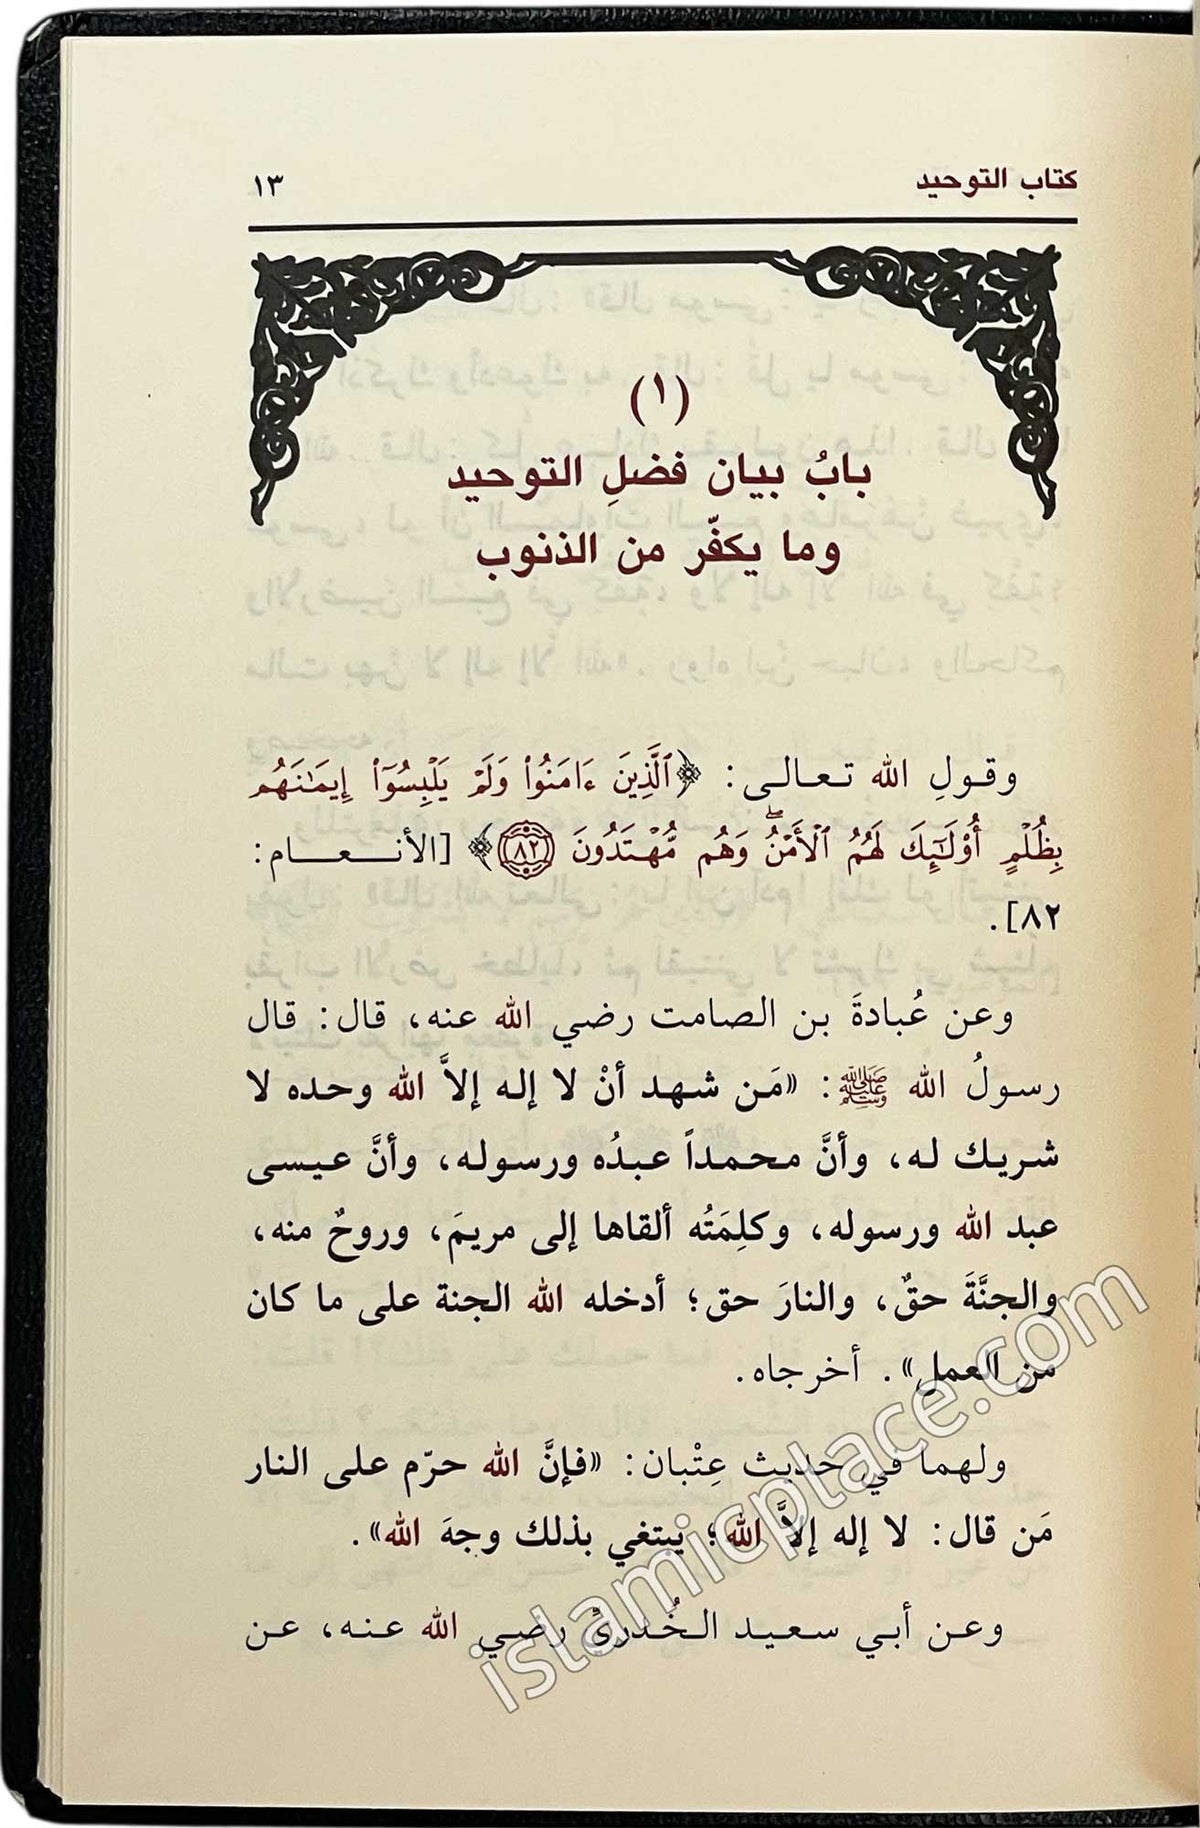 كتاب التوحيد ١٣
(١)
بابُ بيان فضلِ التوحيد
وما يكفّر من الذنوب
وقولِ الله تعالى: ﴿ٱلَّذِينَ ءَامَنُوا۟ وَلَمْ يَلْبِسُوٓا۟ إِيمَٰنَهُم
بِظُلْمٍ أُو۟لَٰٓئِكَ لَهُمُ ٱلْأَمْنُ ۖ وَهُم مُّهْتَدُونَ ٨٢﴾ [الأنعام:
٨٢].
وعن عُبادةَ بن الصامت رضي الله عنه، قال: قال
رسولُ الله ﷺ: «مَن شهد أنْ لا إله إلاَّ الله وحده لا
شريك له، وأنَّ محمداً عبدُه ورسوله، وأنَّ عيسى
عبد الله ورسوله، وكلِمَتُه ألقاها إلى مريمَ، وروحٌ منه،
والجنَّةَ حقٌ، والنارَ حق؛ أدخله الله الجنة على ما كان
من العمل». أخرجاه.
ولهما في حديث عِتْبان: «فإنَّ الله حرّم على النار
مَن قال: لا إله إلاَّ الله؛ يبتغي بذلك وجهَ الله».
وعن أبي سعيد الخُدريِّ رضي الله عنه، عن
islamicplace.com